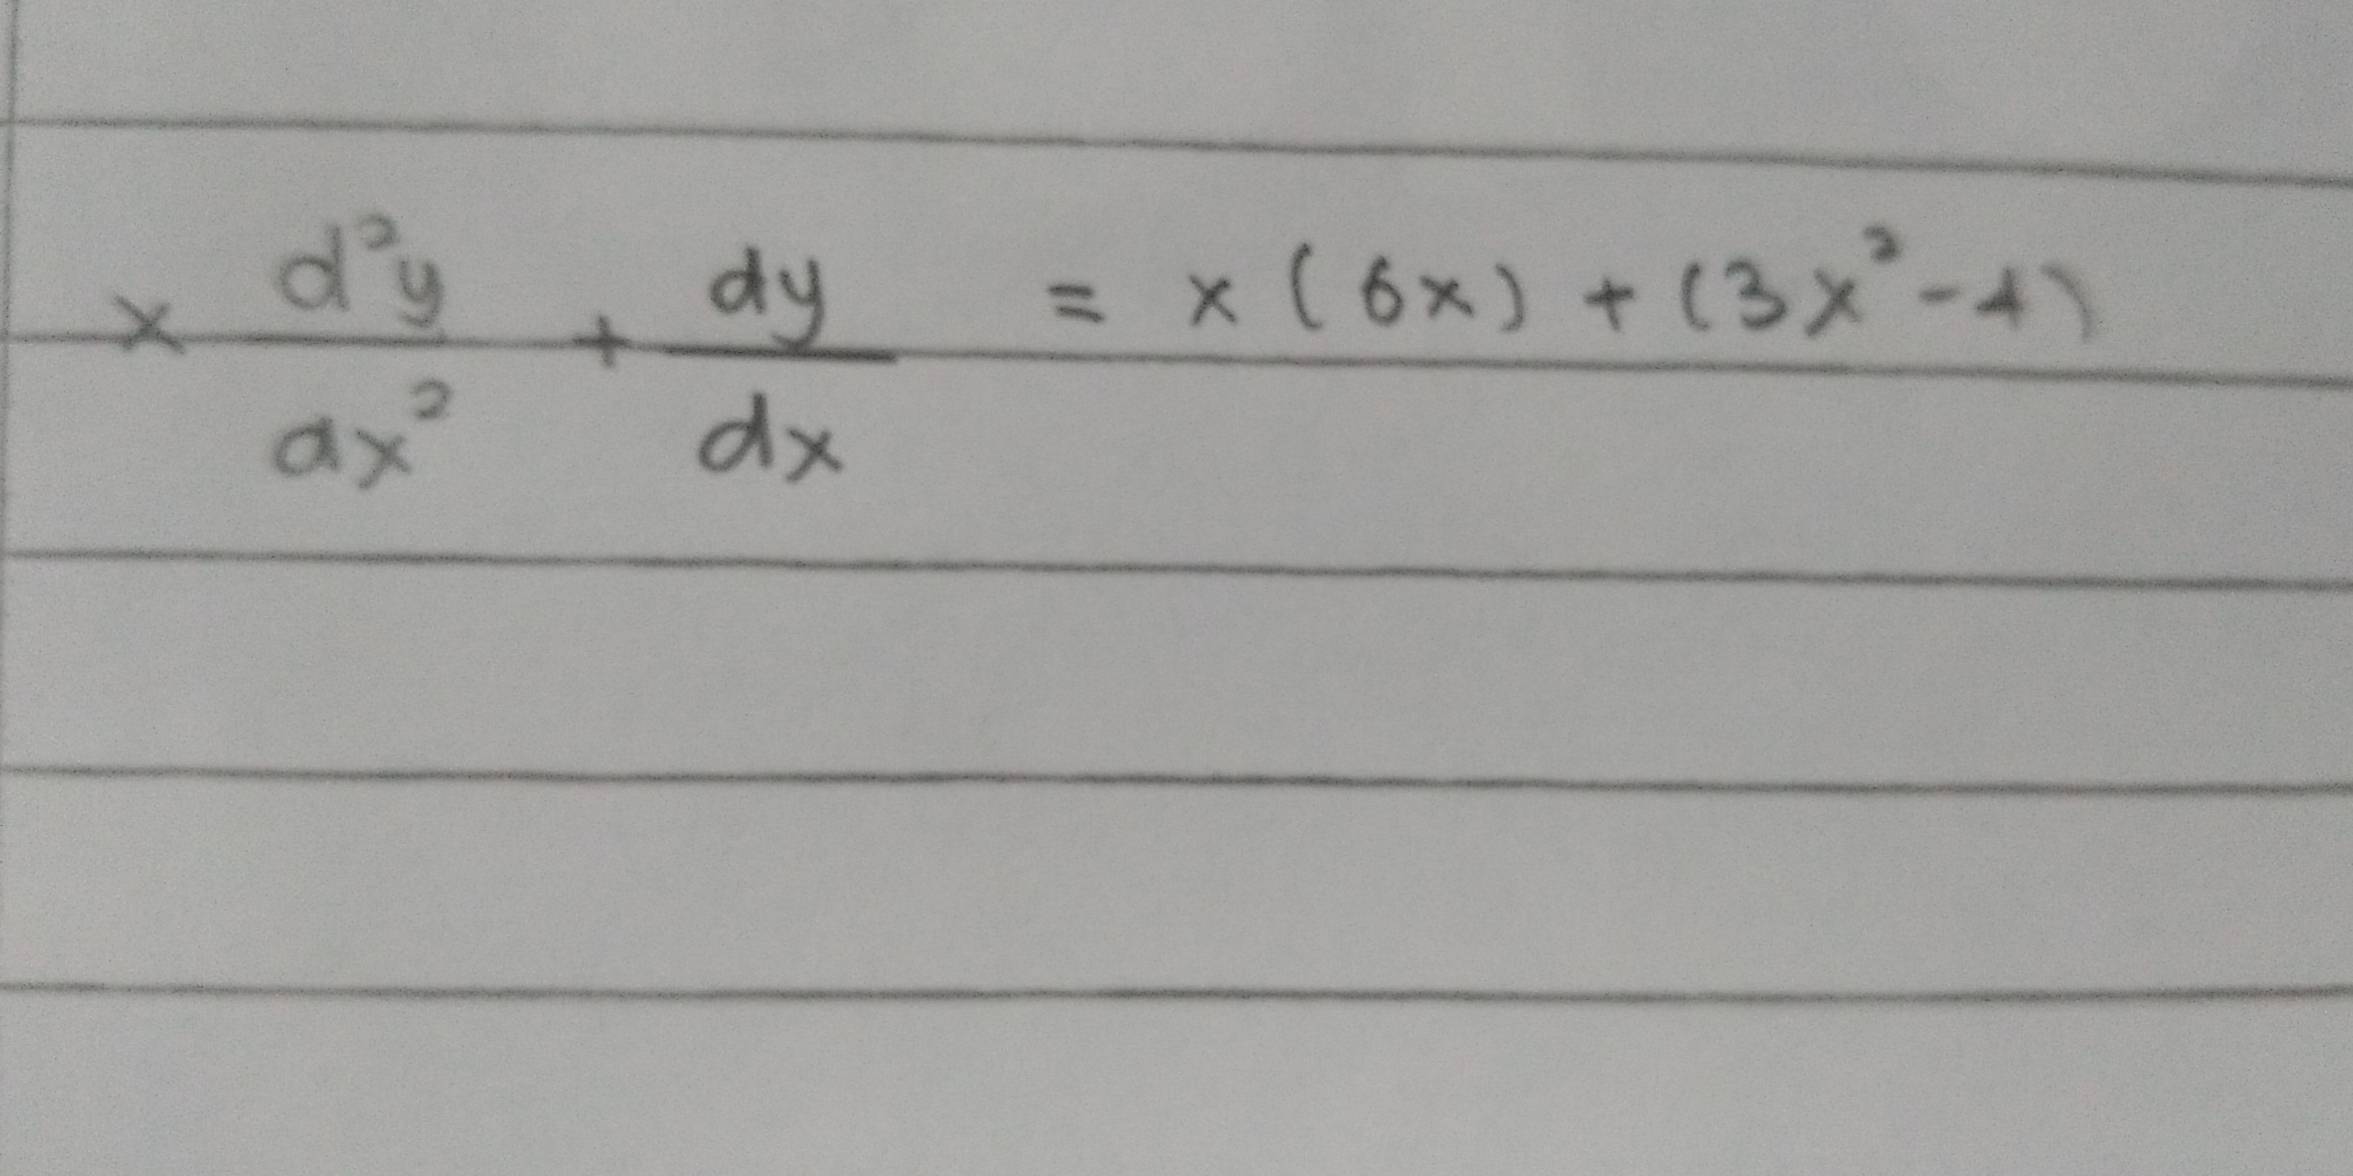 x d²y/dx² + dy/dx = x(6x) + (3x² - 4)